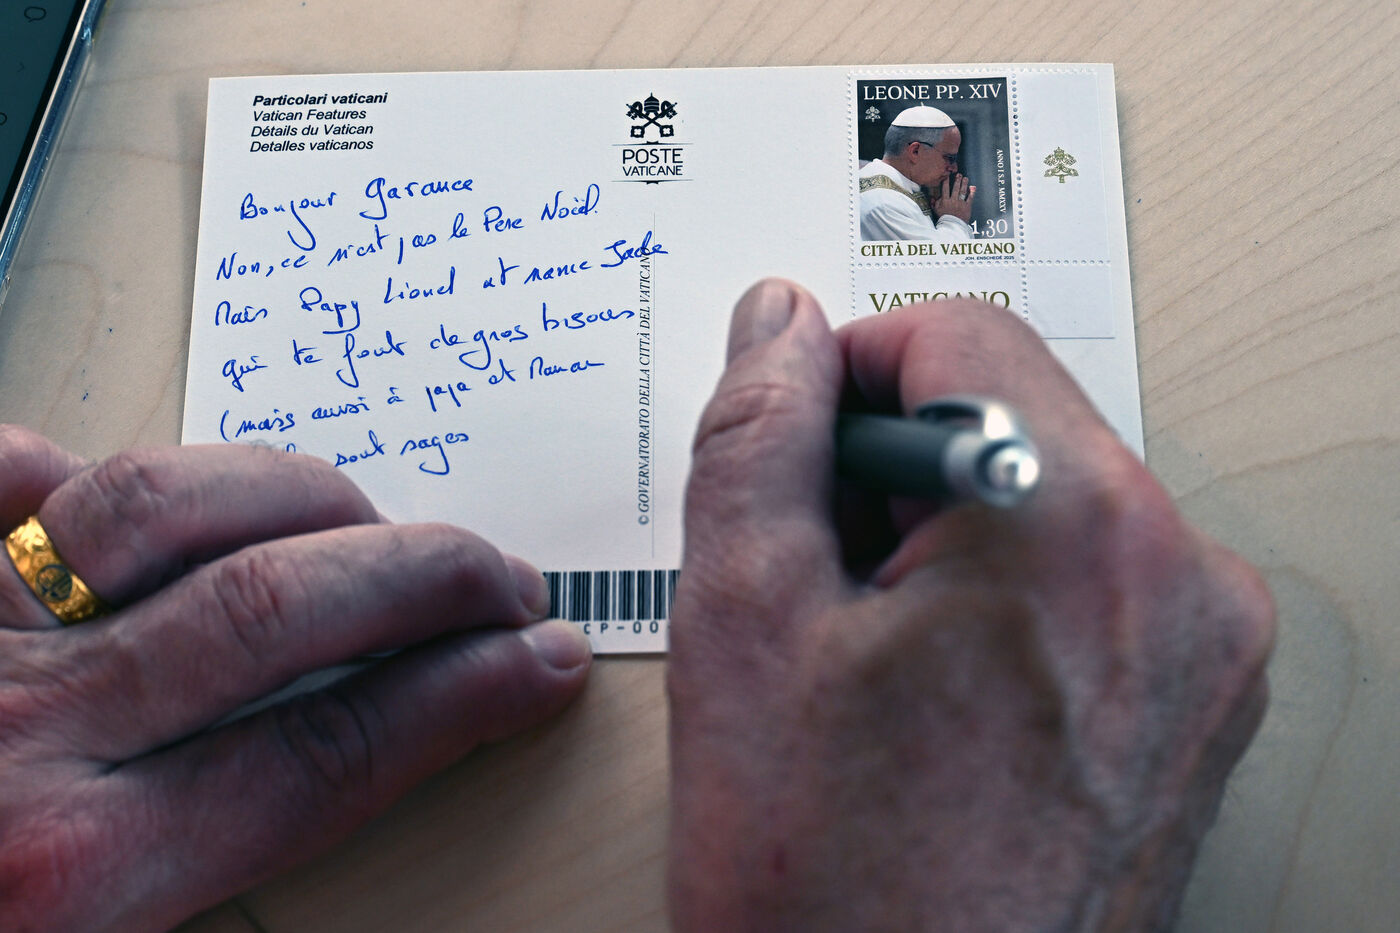 Particolari vaticani
Vatican Features
Détails du Vatican
Detalles vaticanos
POSTE
VATICANE
LEONE PP. XIV
ANNO I S.P. MMXXV
1,30
CITTÀ DEL VATICANO
JOH. ENSCHEDÉ 2025
VATICANO
Bonjour Garance
Non, ce n'est pas le Père Noël.
Mais Papy Lionel et mamie Jade
qui te font de gros bisous
(mais aussi à papa et Maman
sont sages
© GOVERNATORATO DELLA CITTÀ DEL VATICANO
CP-00